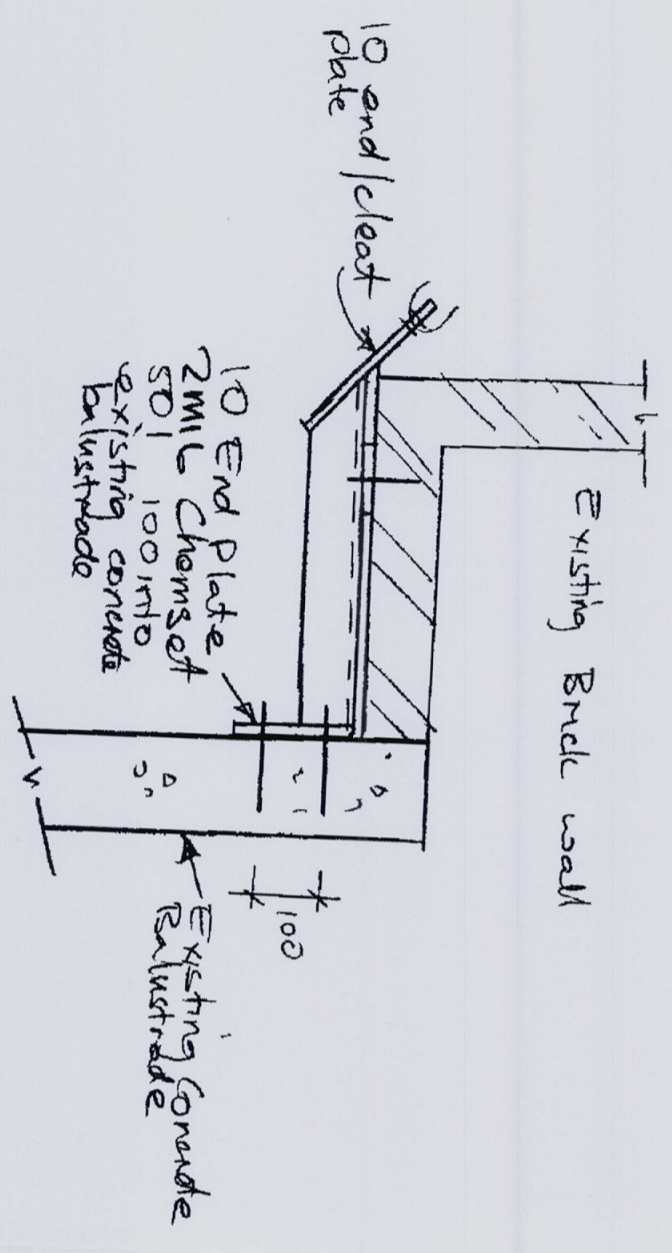 Existing Brick wall
10 end/cleat
plate
10 End Plate
2M16 Chemset
501 100 into
existing concrete
balustrade
100
Existing Concrete
Balustrade